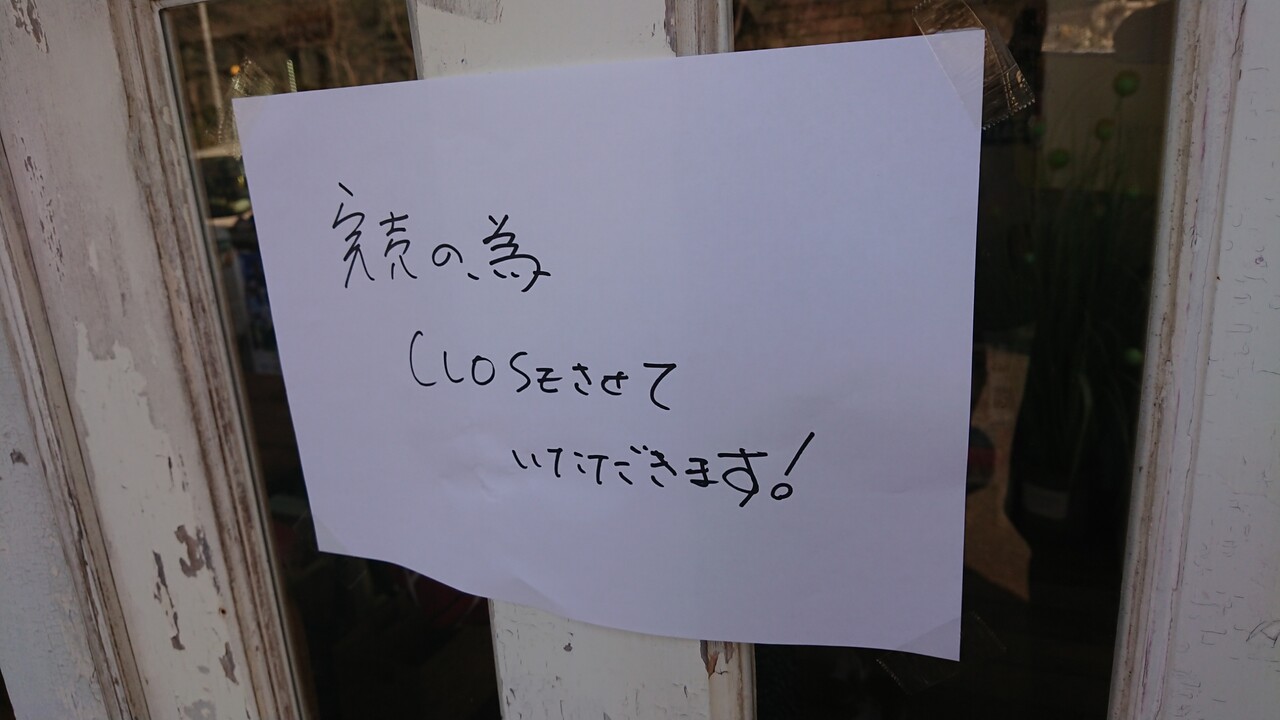 完売の為
CLOSEさせて
いただきます!